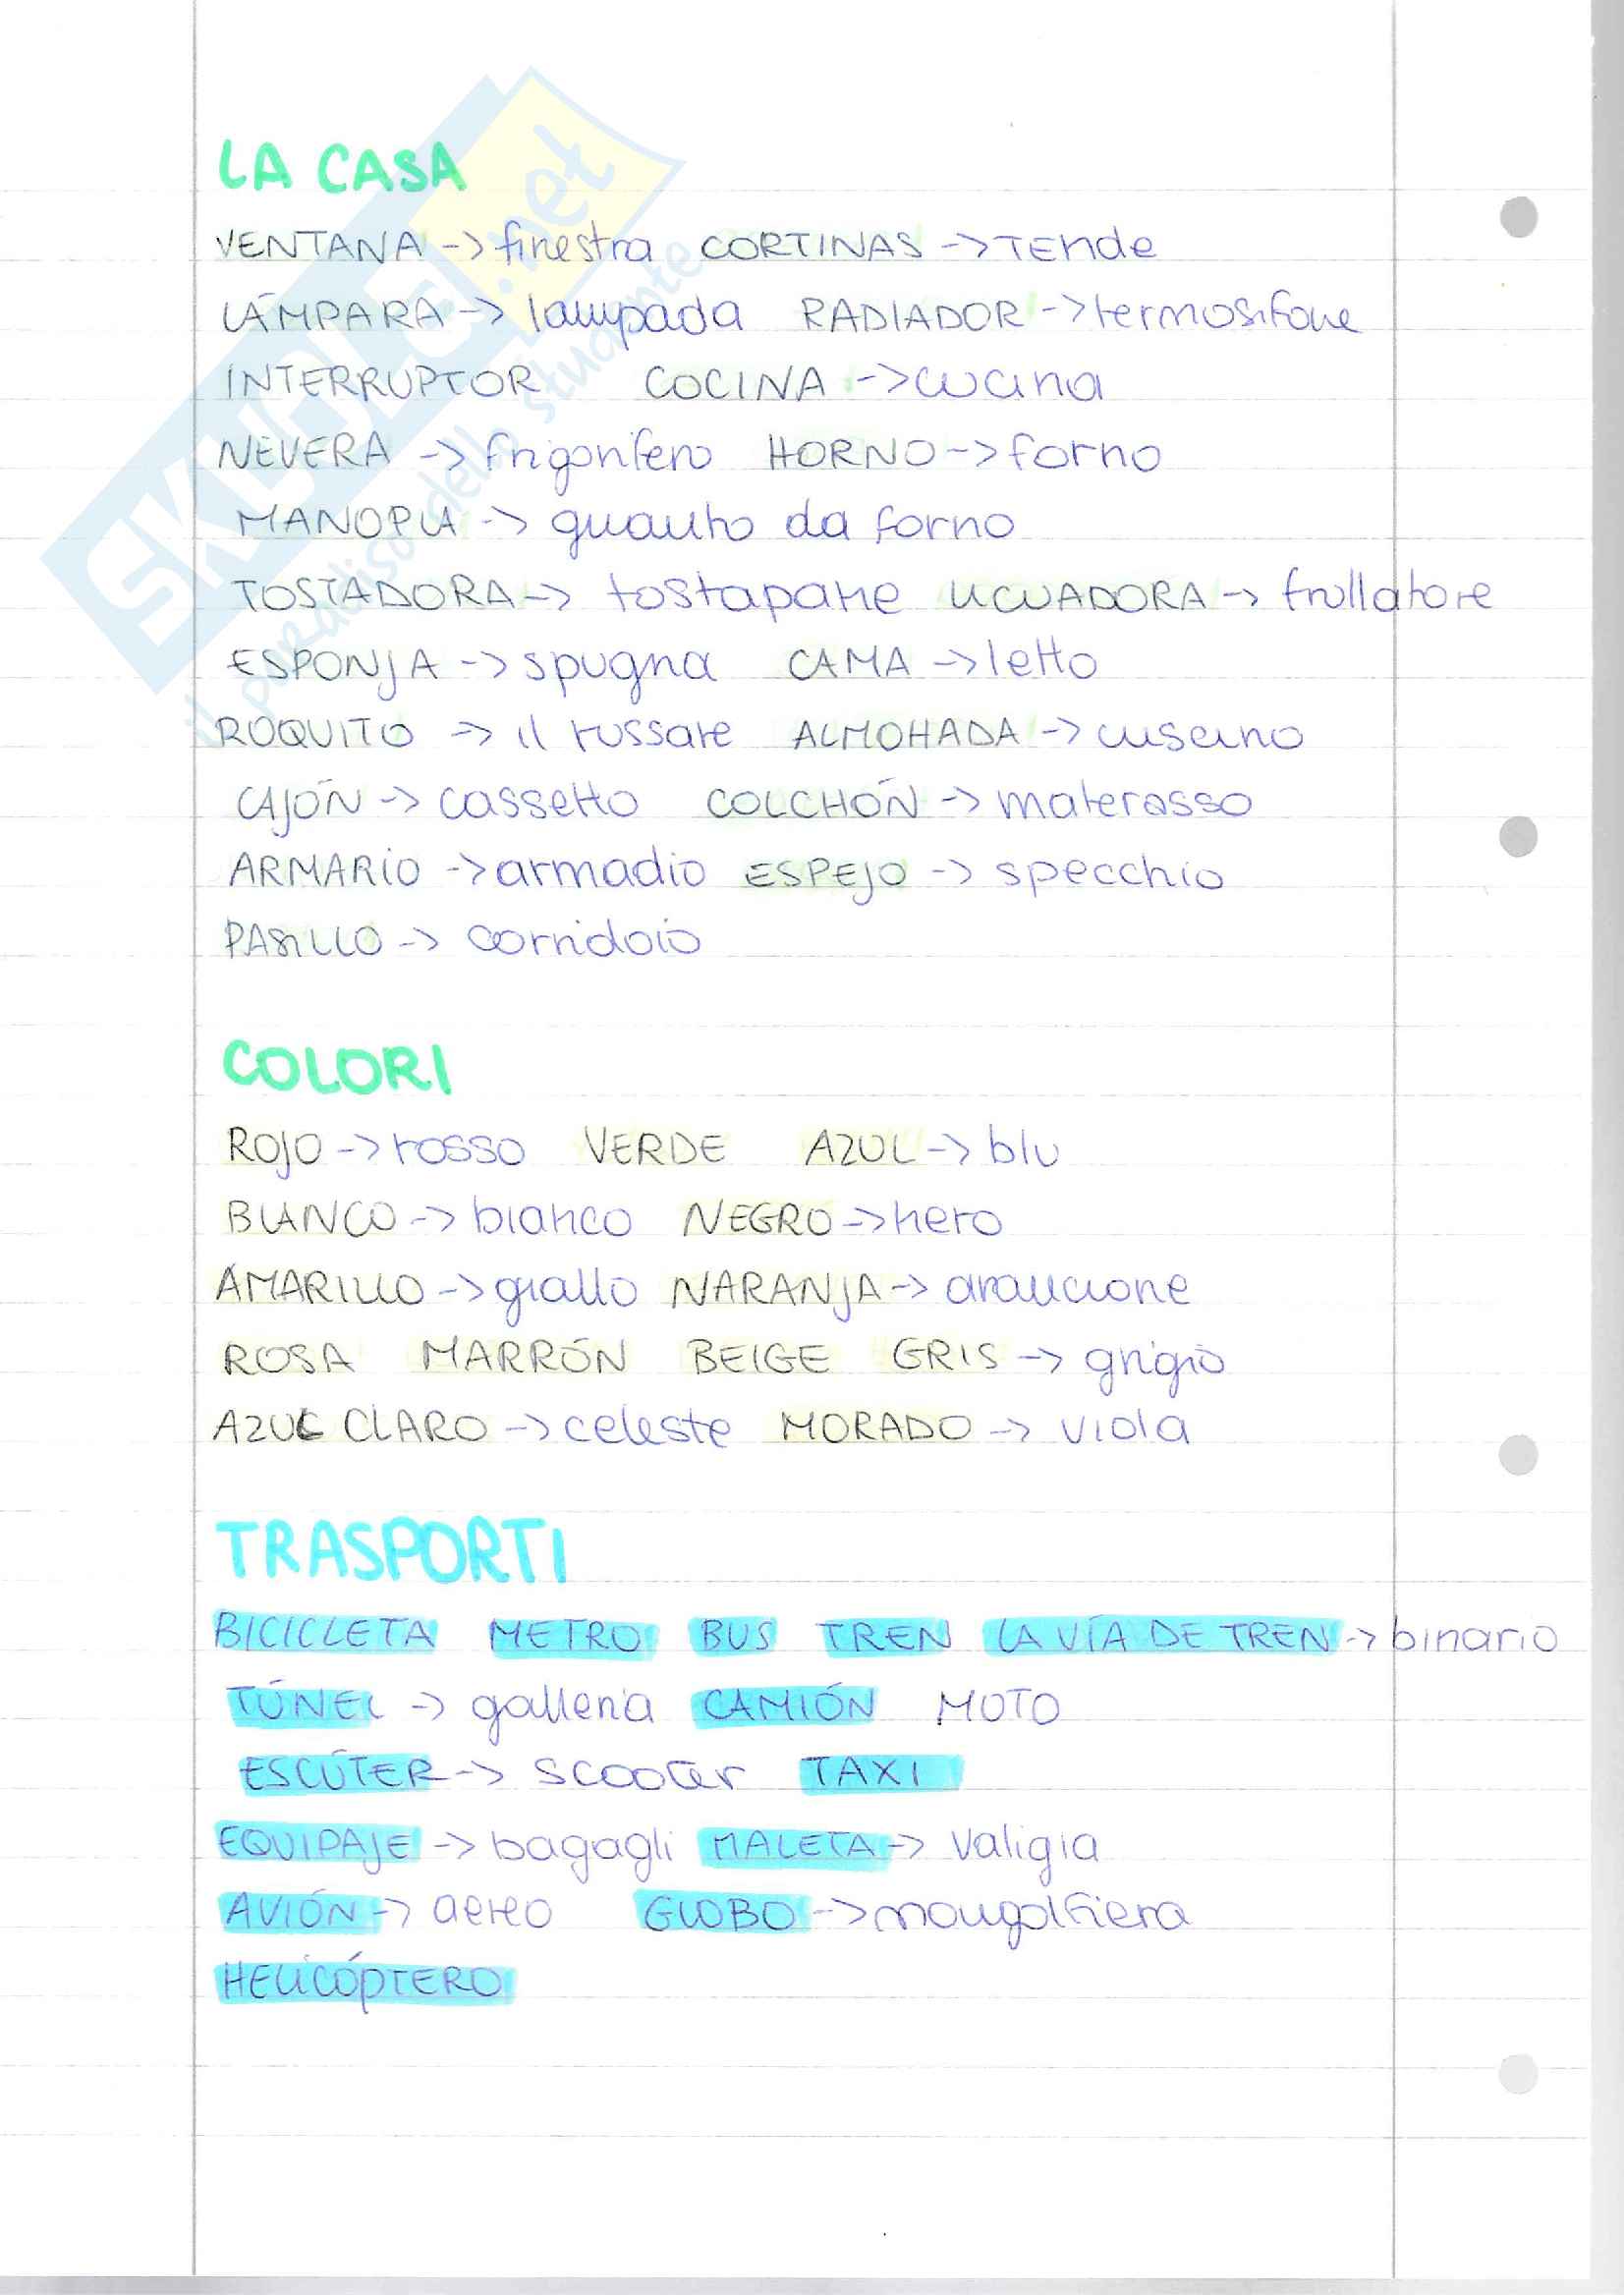 LA CASA
VENTANA -> finestra CORTINAS -> Tende
LÁMPARA -> lampada RADIADOR -> termosifone
INTERRUPTOR COCINA -> cucina
NEVERA -> frigorifero HORNO -> forno
MANOPLA -> guanto da forno
TOSTADORA -> tostapane LICUADORA -> frullatore
ESPONJA -> spugna CAMA -> letto
ROQUITO -> il russare ALMOHADA -> cuscino
CAJÓN -> cassetto COLCHÓN -> materasso
ARMARIO -> armadio ESPEJO -> specchio
PASILLO -> corridoio
COLORI
ROJO -> rosso VERDE AZUL -> blu
BLANCO -> bianco NEGRO -> nero
AMARILLO -> giallo NARANJA -> arancione
ROSA MARRÓN BEIGE GRIS -> grigio
AZUL CLARO -> celeste MORADO -> viola
TRASPORTI
BICICLETA METRO BUS TREN LA VÍA DE TREN -> binario
TÚNEL -> galleria CAMIÓN MOTO
ESCÚTER -> scooter TAXI
EQUIPAJE -> bagagli MALETA -> valigia
AVIÓN -> aereo GLOBO -> mongolfiera
HELICÓPTERO
SKUOLA.net
il paradiso dello studente